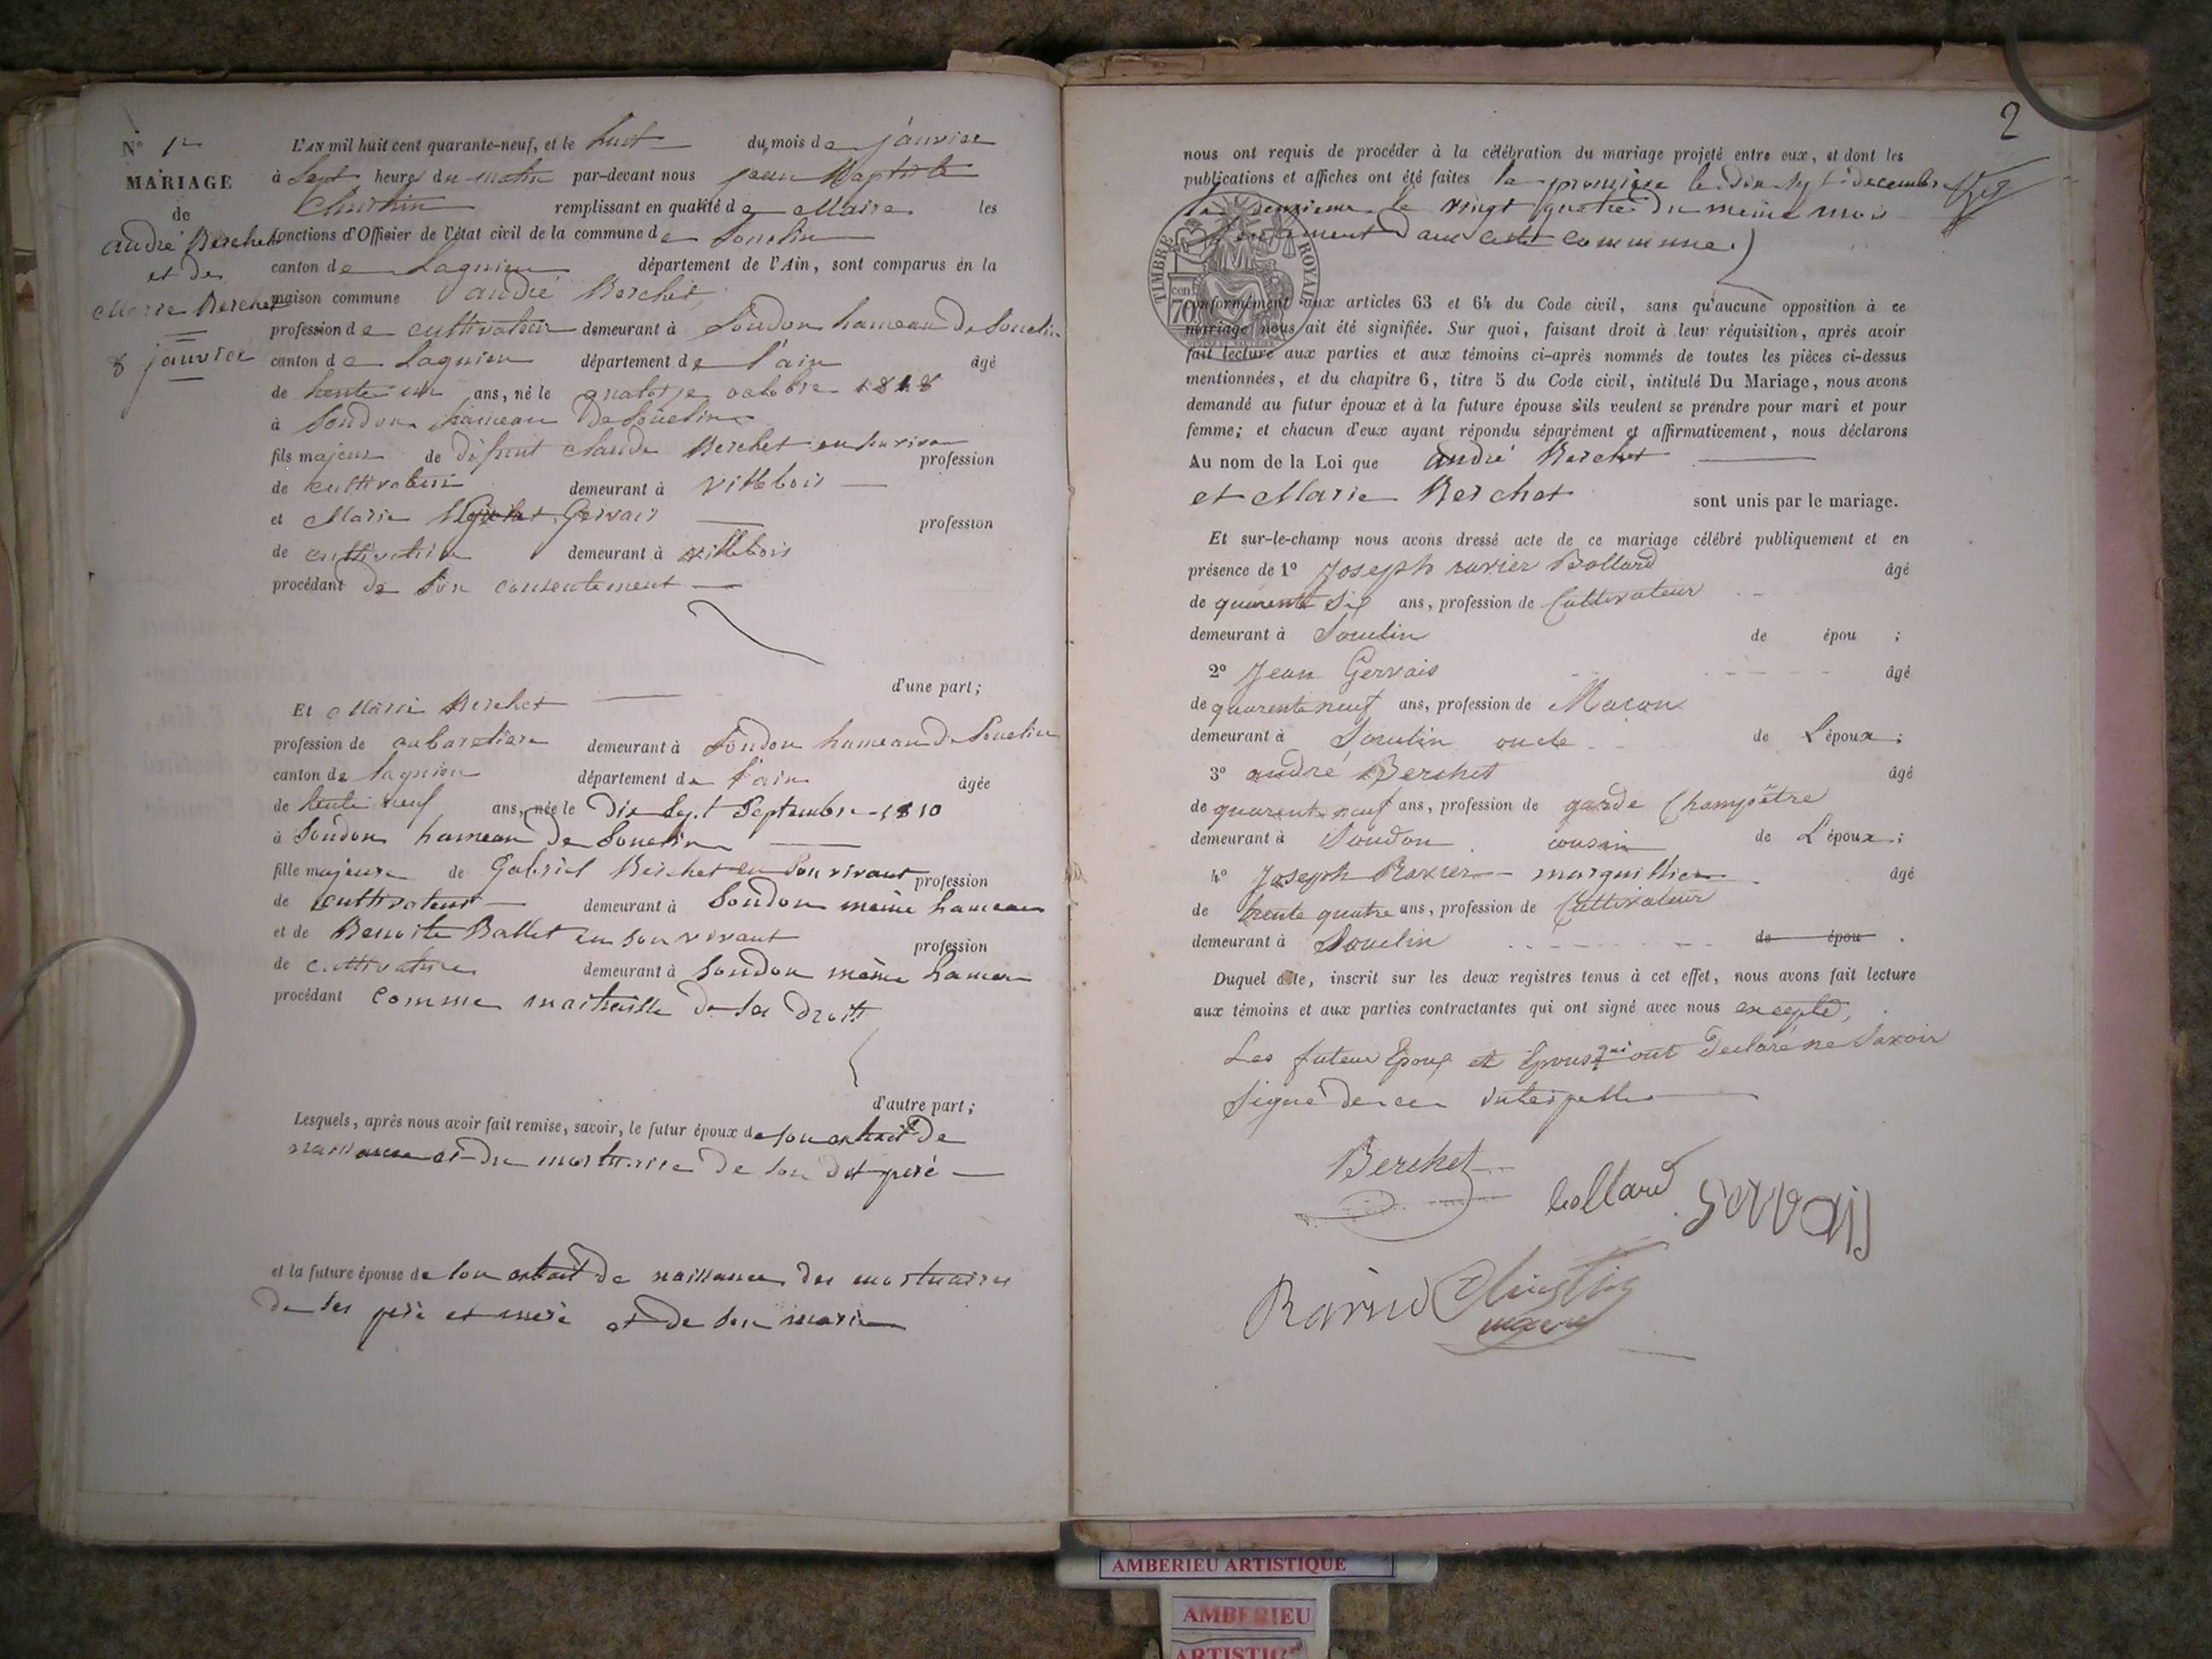 N° 1er
MARIAGE
de
andré Berchet
et de
Marie Berchet
8 janvier
L'AN mil huit cent quarante-neuf, et le huit du mois de janvier
à Sept heures du matin par-devant nous jean Baptiste
remplissant en qualité de Maire les
fonctions d'Officier de l'état civil de la commune de Souclin
canton de Lagnieu département de l'Ain, sont comparus en la
maison commune andré Berchet
profession de cultivateur demeurant à Soudon hameau de Souclin
canton de Lagnieu département de l'ain âgé
de trente un ans, né le quatorze octobre 1818
à Soudon hameau de Souclin
fils majeur de défunt claude Berchet en son vivant profession
de cultivateur demeurant à villebois
et Marie Gervais profession
de cultivatrice demeurant à villebois
procédant de son consentement
d'une part;
Et Marie Berchet
profession de cabaretiere demeurant à Soudon hameau de Souclin
canton de Lagnieu département de l'ain âgée
de trente neuf ans, née le Dix Sept Septembre 1810
à Soudon hameau de Souclin
fille majeure de Gabriel Berchet en son vivant profession
de cultivateur demeurant à Soudon même hameau
et de Benoite Ballet en son vivant profession
de cultivatrice demeurant à Soudon même hameau
procédant comme maitresse de ses droits
d'autre part;
Lesquels, après nous avoir fait remise, savoir, le futur époux de son extrait de
naissance et du mortuaire de son dit père
et la future épouse de son extrait de naissance des mortuaires
de ses père et mère et de son mari
2
nous ont requis de procéder à la célébration du mariage projeté entre eux, et dont les
publications et affiches ont été faites la première le dix sept décembre
la deuxieme le vingt quatre du meme mois
dans cette commune.
TIMBRE ROYAL
70 cen.
conformément aux articles 63 et 64 du Code civil, sans qu'aucune opposition à ce
mariage nous ait été signifiée. Sur quoi, faisant droit à leur réquisition, après avoir
fait lecture aux parties et aux témoins ci-après nommés de toutes les pièces ci-dessus
mentionnées, et du chapitre 6, titre 5 du Code civil, intitulé Du Mariage, nous avons
demandé au futur époux et à la future épouse s'ils veulent se prendre pour mari et pour
femme; et chacun d'eux ayant répondu séparément et affirmativement, nous déclarons
Au nom de la Loi que André Berchet
et Marie Berchet sont unis par le mariage.
Et sur-le-champ nous avons dressé acte de ce mariage célébré publiquement et en
présence de 1° Joseph xavier Bollard âgé
de quarente Six ans, profession de Cultivateur
demeurant à Souclin de épou ;
2° Jean Gervais âgé
de quarente neuf ans, profession de Macon
demeurant à Souclin oncle de L'époux ;
3° andré Berchet âgé
de quarente neuf ans, profession de garde Champêtre
demeurant à Soudon cousin de L'époux ;
4° Joseph Ravier marguillier âgé
de trente quatre ans, profession de Cultivateur
demeurant à Souclin de épou .
Duquel acte, inscrit sur les deux registres tenus à cet effet, nous avons fait lecture
aux témoins et aux parties contractantes qui ont signé avec nous excepté,
Les futeur Epoux et Epouse qui ont declaré ne Savoir
Signé de ce interpellés
Berchet
bollard Gervais
Ravier
maire
AMBERIEU ARTISTIQUE
AMBERIEU
ARTISTIQUE